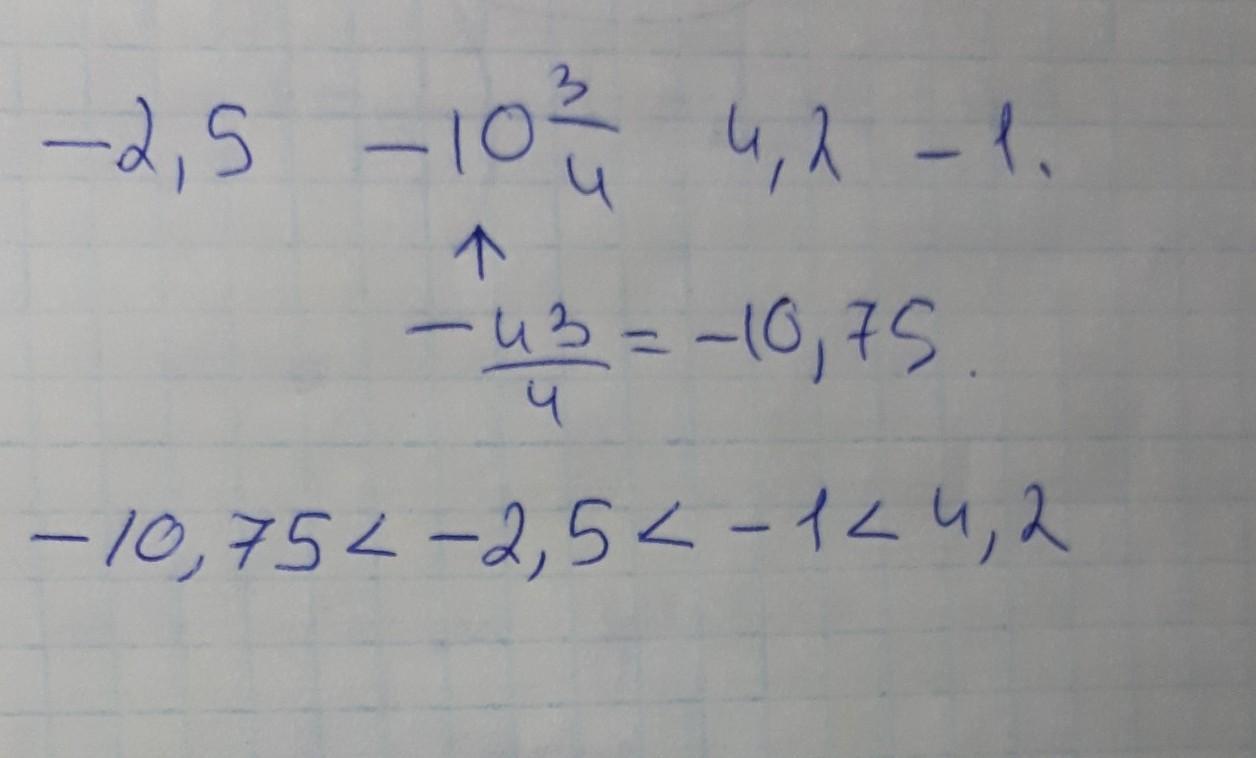 -2,5 -10 3/4 4,2 -1.
↑
-43/4 = -10,75.
-10,75 < -2,5 < -1 < 4,2